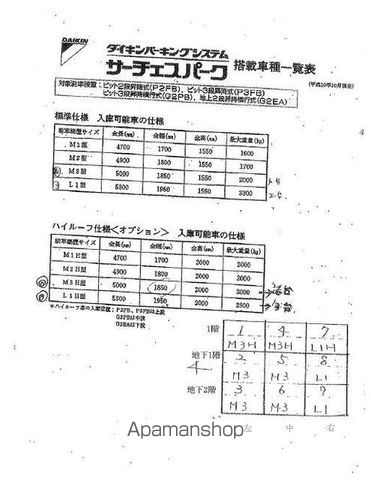 DAIKIN
ダイキンパーキングシステム
サーチェスパーク 搭載車種一覧表
(平成10年10月現在)
対象駐車装置:ピット2段昇降式(P2FB)、ピット3段昇降式(P3FB)
ピット3段昇降横行式(G2PB)、地上2段昇降横行式(G2EA)
標準仕様 入庫可能車の仕様
駐車装置サイズ 全長(㎜) 全幅(㎜) 全高(㎜) 最大重量(kg)
M1型 4700 1700 1550 1600
M2型 4900 1800 1550 1700
M3型 5000 1850 1550 2000
L1型 5300 1950 1550 2300
ハイルーフ仕様<オプション> 入庫可能車の仕様
駐車装置サイズ 全長(㎜) 全幅(㎜) 全高(㎜) 最大重量(kg)
M1H型 4700 1700 2000 2000
M2H型 4900 1800 2000 2000
M3H型 5000 1850 2000 2000
L1H型 5300 1950 2000 2300
*ハイルーフ車の入庫位置:P2FB、P3FBは上段
G2PBは中段
G2EAは下段
1階 1 4 7
M3H M3H L1H
地下1階 2 5 8
4 M3 M3 L1
地下2階 3 6 9
M3 M3 L1
左 中 右
Apamanshop